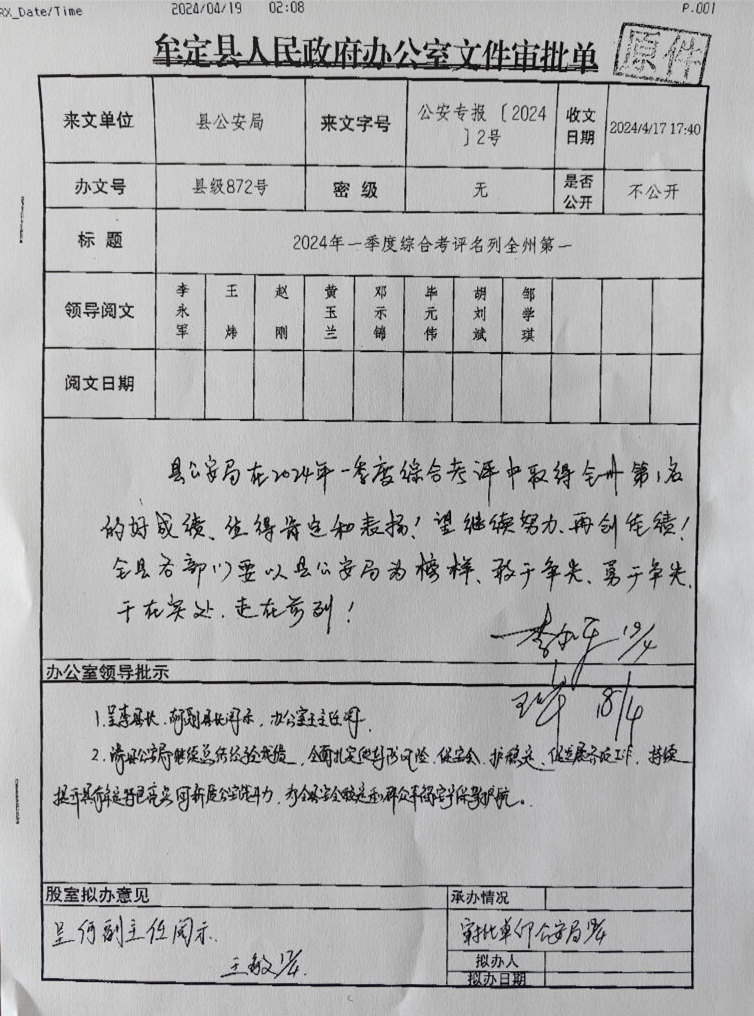 RX_Date/Time 2024/04/19 02:08 P.001
牟定县人民政府办公室文件审批单
原件
来文单位 县公安局 来文字号 公安专报〔2024〕2号 收文日期 2024/4/17 17:40
办文号 县级872号 密级 无 是否公开 不公开
标题 2024年一季度综合考评名列全州第一
领导阅文 李永军 王炜 赵刚 黄玉兰 邓示锦 毕元伟 胡刘斌 邹学琪
阅文日期
县公安局在2024年一季度综合考评中取得全州第1名
的好成绩、值得肯定和表扬！望继续努力、再创佳绩！
全县各部门要以县公安局为榜样、敢于争先、勇于争先、
干在实处、走在前列！
19/4
办公室领导批示
18/4
1.呈李县长、胡副县长阅示，办公室主任阅。
2.请县公安局继续总结经验成绩，全面扎实做好防风险、保安全、护稳定、促发展各项工作，持续
股室拟办意见 承办情况
呈何副主任阅示.
王敏 17/4.
审批单印公安局 19/4
拟办人
拟办日期